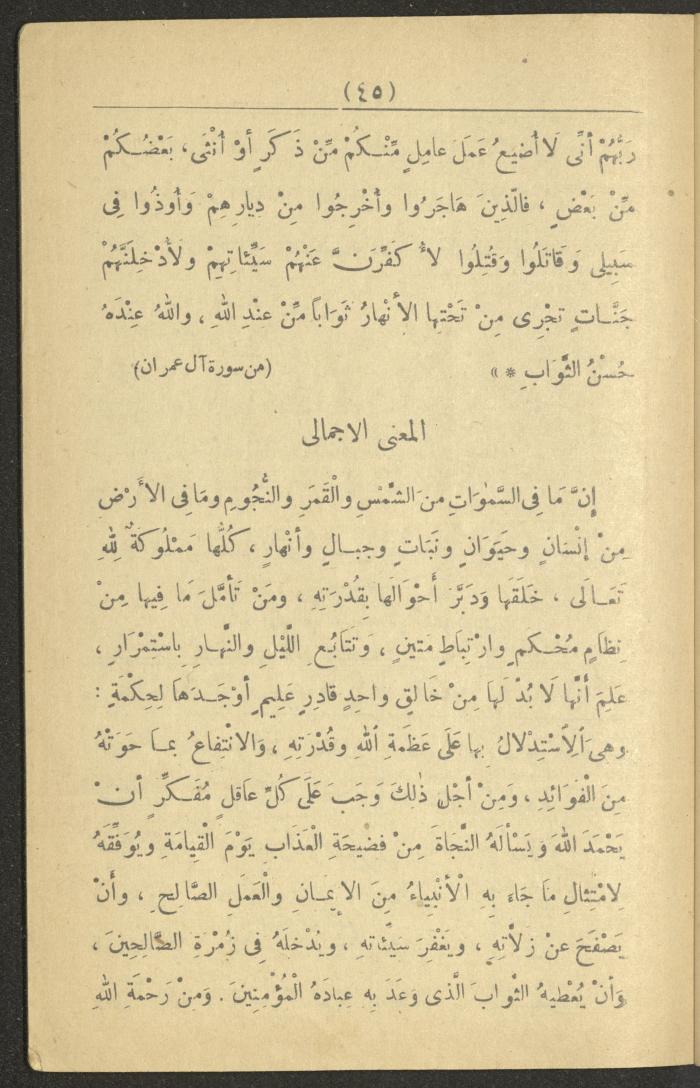 (٤٥)
رَبُّهُمْ أَنِّى لَا أُضِيعُ عَمَلَ عامِلٍ مِّنْكُمْ مِّنْ ذَكَرٍ أَوْ أُنْثَى، بَعْضُكُمْ
مِّنْ بَعْضٍ ، فالّذِينَ هَاجَرُوا وأُخْرِجُوا مِنْ دِيارِهِمْ وَأُوذُوا فِى
سَبِيلِى وَقَاتَلُوا وَقُتِلُوا لأُكَفِّرَنَّ عَنْهُمْ سَيِّئاتِهِمْ ولأُدْخِلَنَّهُمْ
جَنَّاتٍ تَجْرِى مِنْ تَحْتِها الأَنْهارُ ثَوَاباً مِّنْ عندِ اللهِ ، واللهُ عِنْدَهُ
حُسْنُ الثَّوَابِ * » (من سورة آل عمران)
المعنى الاجمالى
إِنَّ مَا فِى السَّمٰوَاتِ منَ الشمْسِ والْقَمَرِ والنُّجُومِ ومَا فِى الأَرْضِ
مِنْ إنْسَانٍ وحَيَوَانٍ ونَبَاتٍ وجبالٍ وأنْهارٍ ، كُلُّها مَمْلُوكةٌ لِلهِ
تَعَالَى ، خَلَقَهَا وَدَبَّرَ أَحْوَالَها بِقُدْرَتِهِ ، ومَنْ تَأَمَّلَ مَا فِيها مِنْ
نِظامٍ مُحْكمٍ وارْتِباطٍ مَتينٍ ، وَتَتَابُعِ اللّيْلِ والنَّهارِ بِاسْتِمْرَارٍ ،
عَلِمَ أَنَّها لَا بُدْ لَها مِنْ خَالِقٍ واحِدٍ قادِرٍ عَلِيمٍ أَوْجَدَهَا لِحِكْمَةٍ :
وهىَ الِاسْتِدْلالُ بِها عَلَى عَظَمةِ اللهِ وقُدْرَتِهِ ، وَالانْتِفاعُ بمَا حَوَتْهُ
مِنَ الْفَوَائِدِ ، وَمِنْ أَجْلِ ذٰلِكَ وَجَبَ عَلَى كُلِّ عاقلٍ مُفَكِّرٍ أَنْ
يَحْمَدَ اللهَ وَيَسْأَلَهُ النَّجَاةَ مِنْ فَضِيحَةِ الْعَذَابِ يَوْمَ الْقِيَامَةِ ويُوَفِّقَهُ
لِامْتِثالِ مَا جَاءَ بِهِ الْأَنْبِيَاءُ مِنَ الإِيمَانِ والْعَمَلِ الصَّالِحِ ، وأَنْ
يَصْفَحَ عنْ زلاَّتِهِ ، ويَغْفِرَ سَيِّئاتهِ ، ويُدْخلَهُ فى زُمْرَةِ الصَّالِحِينَ ،
وَأَنْ يُعْطيهُ الثّوابَ الَّذى وَعَدَ بِهِ عِبادَهُ الْمُؤْمِنِينَ . وَمِنْ رَحْمَةِ اللهِ